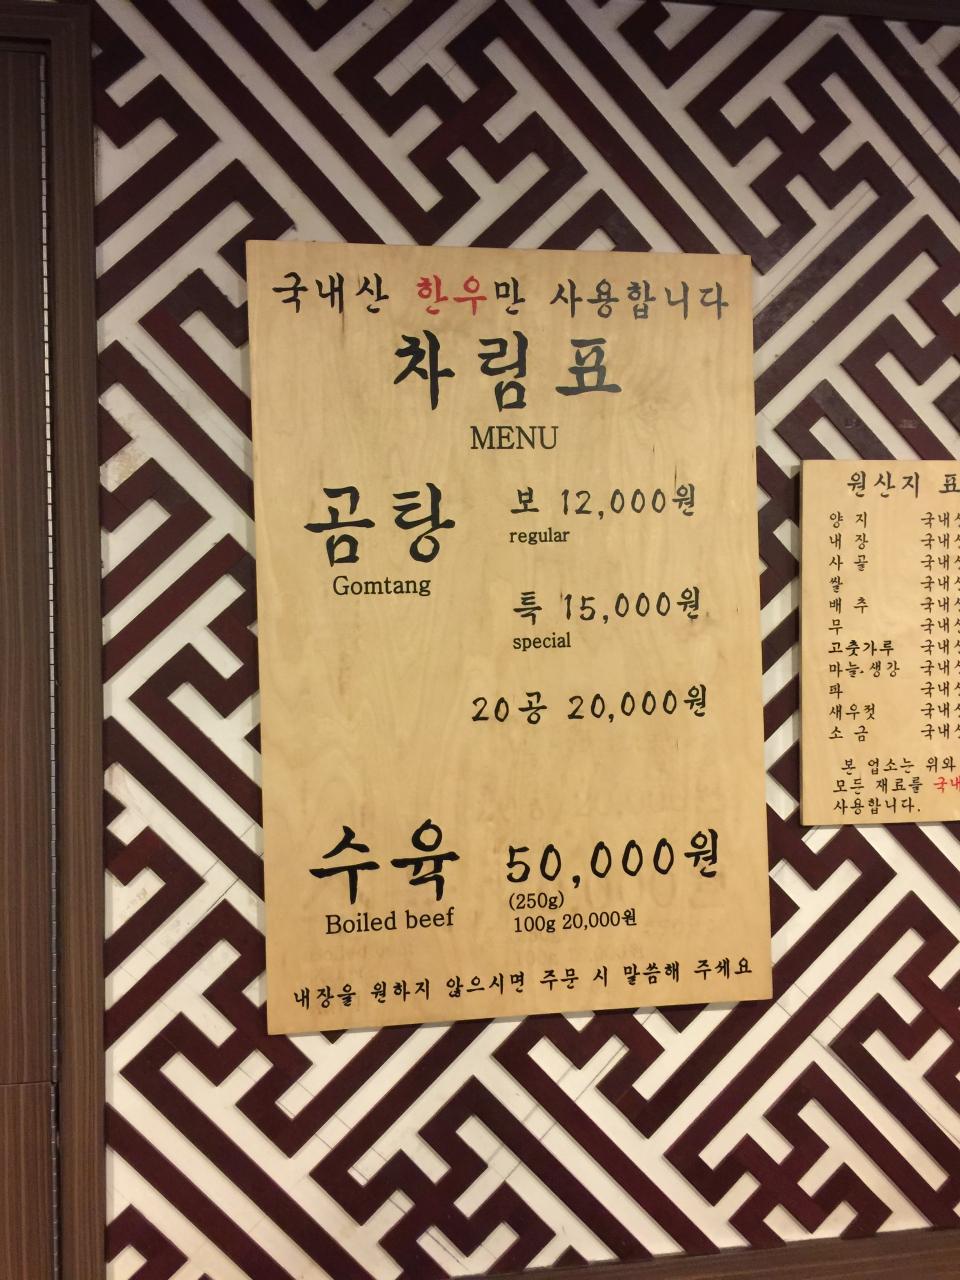 국내산 한우만 사용합니다
차림표
MENU
곰탕 보 12,000원
Gomtang regular
특 15,000원
special
20공 20,000원
수육 50,000원
Boiled beef (250g)
100g 20,000원
내장을 원하지 않으시면 주문 시 말씀해 주세요
원산지 표
양지 국내
내장 국내
사골 국내
쌀 국내
배추 국내
무 국내
고춧가루 국내
마늘·생강 국내
파 국내
새우젓 국내
소금 국내
본 업소는 위와
모든 재료를 국내
사용합니다.